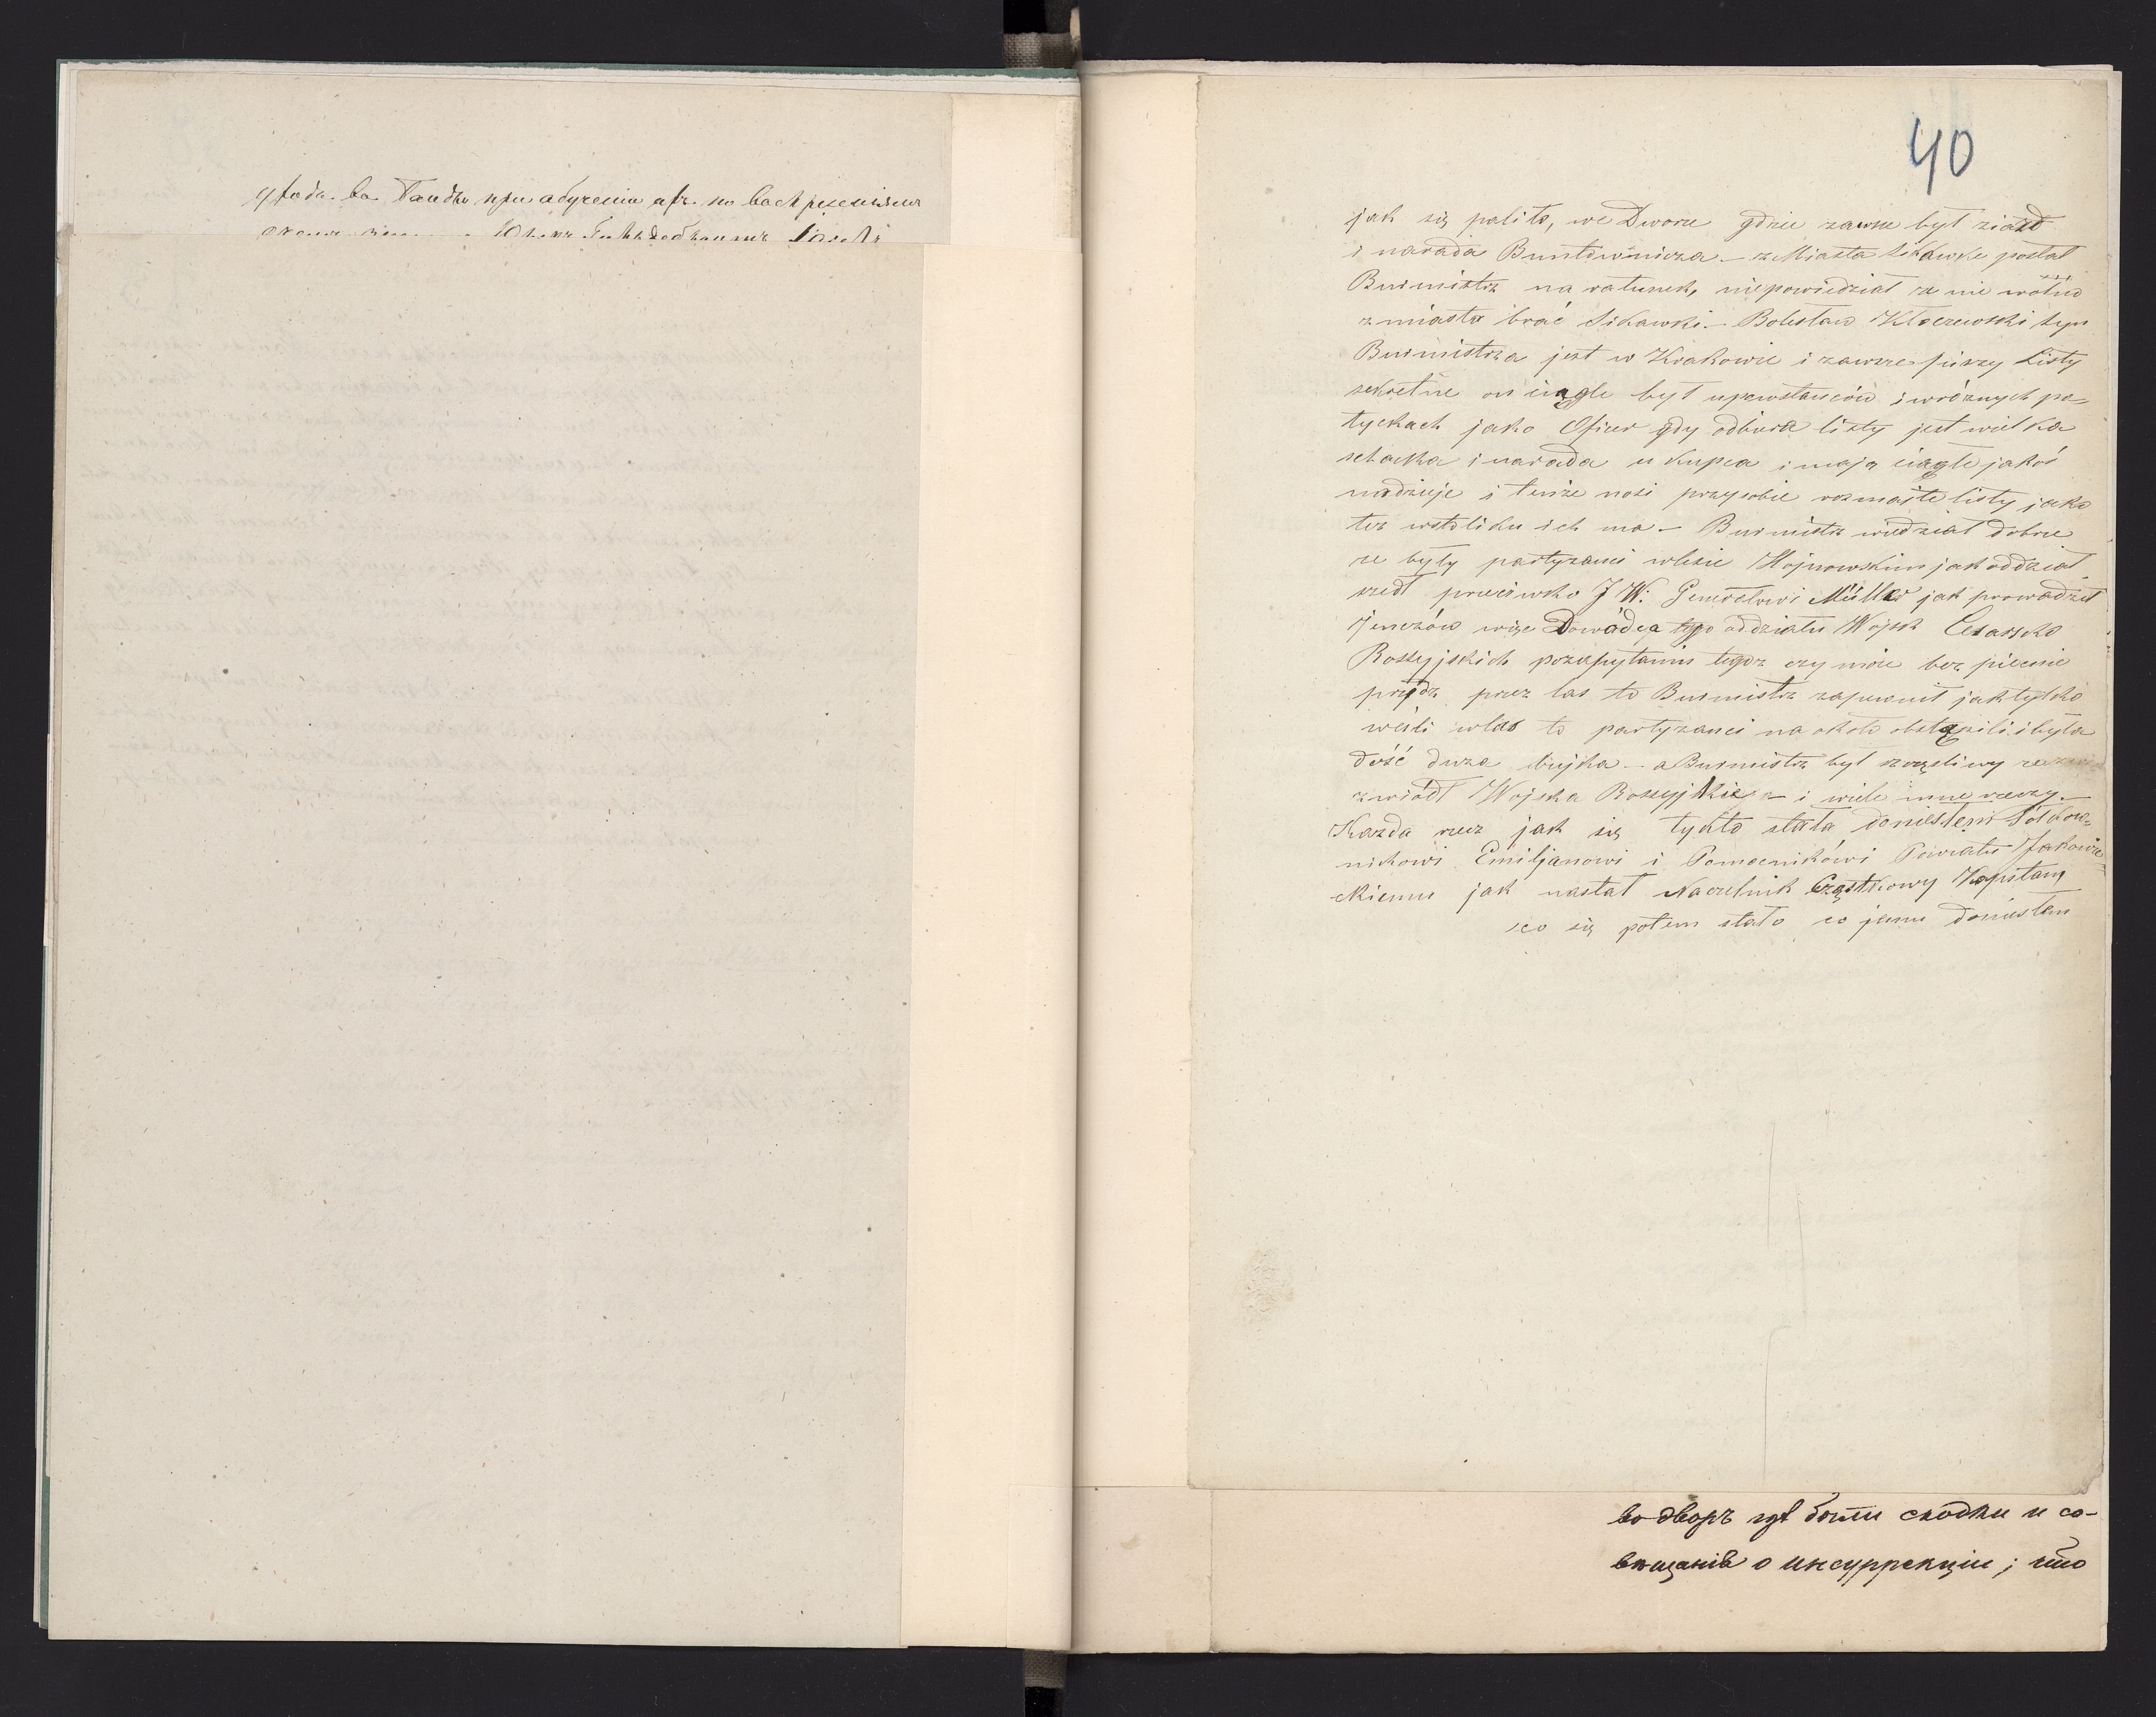 при
40
jak się palito, we Dworze gdzie zawsze był ziazd
i narada Buntownicza – z Miasta Sikawke posłał
Burmistrz na ratunek, niepowiedział ze nie wolno
z miasta brać Sikawki. – Bolesław syn
Burmistrza jest w Krakowie i zawsze piszy Listy
sekretne on ciągle był upowstańców i wróznych po=
tyckach jako Oficer gdy odbiera listy jest wielka
schacka i narada u Kupca i mają ciągle jakoś
nadzieje i tenże nosi przysobie rozmajte listy jako
tez wstoliku ich ma – Burmistrz wiedział dobrze
ze były partyzanci wlesie Wojnowskim jak oddział
szedł przeciwko J W. Generałowi Müller jak prowadził
Jenczów więc Dowódca tego oddziału Wojsk Cesarsko
Rossyjskich pozapytaniu tegoz czy może bez piecznie
przez las to Burmistrz zapewnił jak tylko
weśli wlas to partyzanci na około obstąpili i była
dość duza bujka – a Burmistrz był szczęśliwy ze
zwiódł Wojska Rossyjskiego – i wiele inne rzeczy. –
Kazda rzecz jak się tylko stała doniesłem Półkow=
nikowi Emiljanowi i Pomocnikówi Powiatu Jakowic=
ckiemu jak nastał Naczelnik Cząstkowy Kapitan
co się potem stało co jemu doniosłem
во дворѣ гдѣ были сходки и со-
вѣщанiя о инсуррекцiи; что